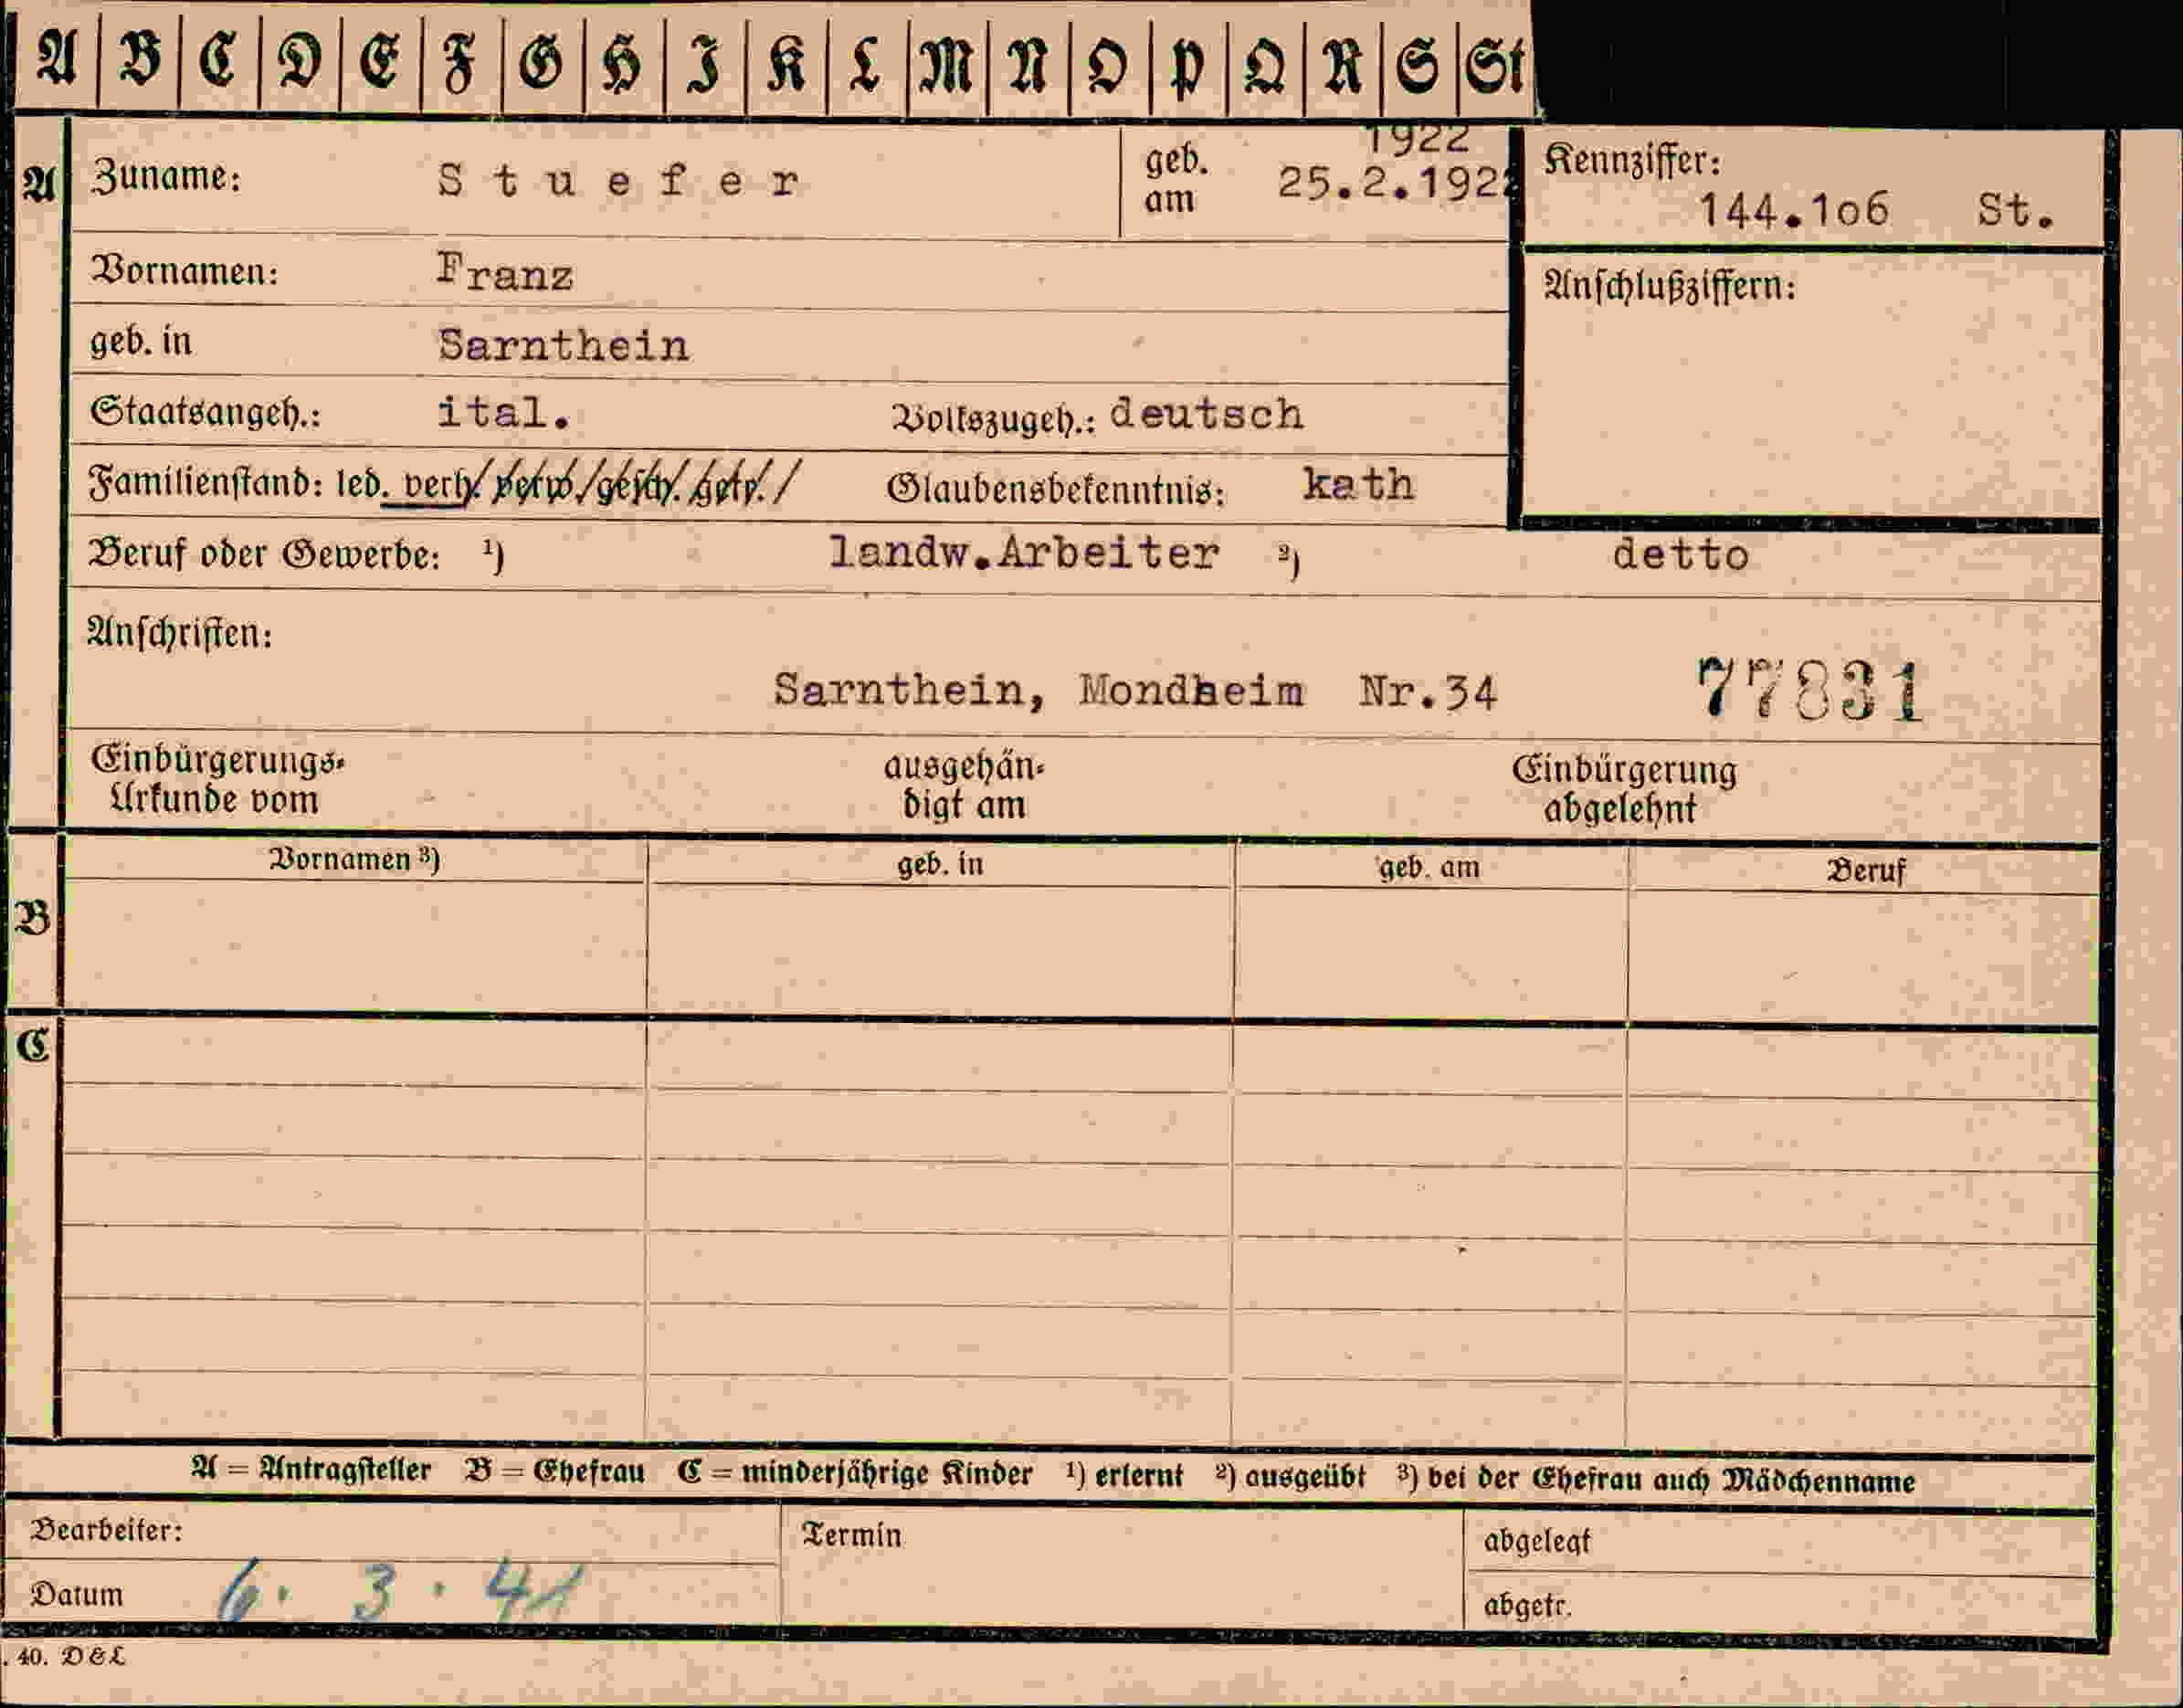 A B C D E F G H I K L M N O P Q R S St
A Zuname: Stuefer geb. am 1922 25.2.1922 Kennziffer: 144.1o6 St.
Vornamen: Franz Anschlußziffern:
geb. in Sarnthein
Staatsangeh.: ital. Volkszugeh.: deutsch
Familienstand: led. verh. verw. gesch. getr. Glaubensbekenntnis: kath
Beruf oder Gewerbe: ¹) landw.Arbeiter ²) detto
Anschriften:
Sarnthein, Mondheim Nr.34 77831
Einbürgerungs-Urkunde vom ausgehändigt am Einbürgerung abgelehnt
Vornamen ³) geb. in geb. am Beruf
B
C
A = Antragsteller B = Ehefrau C = minderjährige Kinder ¹) erlernt ²) ausgeübt ³) bei der Ehefrau auch Mädchenname
Bearbeiter: Termin abgelegt
Datum 6. 3. 41 abgetr.
. 40. D&L